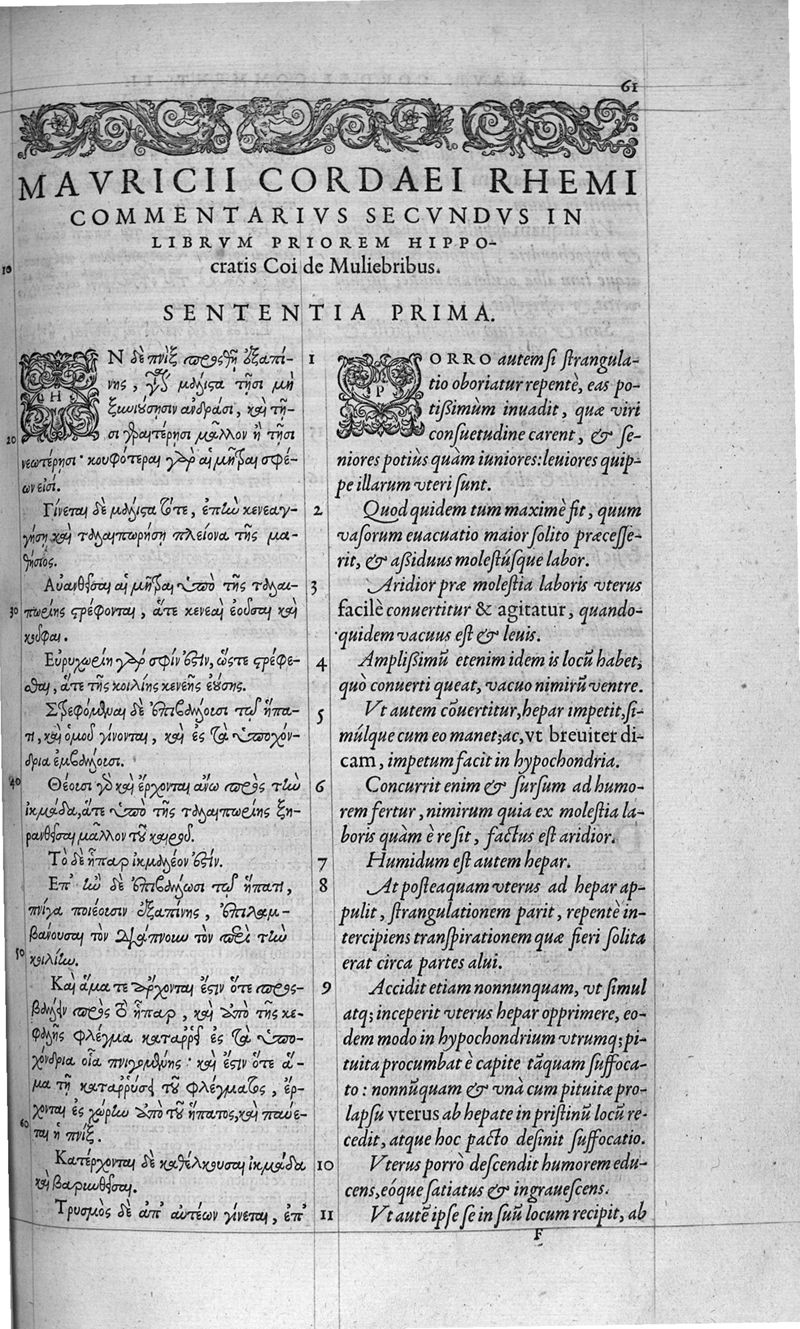 61
MAVRICII CORDAEI RHEMI
COMMENTARIVS SECVNDVS IN
LIBRVM PRIOREM HIPPO-
10 cratis Coi de Muliebribus.
SENTENTIA PRIMA.
ΗΝ δὲ πνὶξ προσθῇ ἐξαπί-
νης, μάλιστα τῇσι μὴ
ξυνιούσῃσιν ἀνδράσι, καὶ τῇ-
20 σι γεραιτέρῃσι μᾶλλον ἢ τῇσι
νεωτέρῃσι· κουφότεραι γὰρ αἱ μῆτραι σφέ-
ων εἰσί.
Γίνεται δὲ μάλιστα τότε, ἐπὴν κενεαγ-
γήσῃ καὶ ταλαιπωρήσῃ πλείονα τῆς μα-
θήσιος.
Αὐανθεῖσαι αἱ μῆτραι ὑπὸ τῆς ταλαι-
30 πωρίης στρέφονται, ἅτε κενεαὶ ἐοῦσαι καὶ
κοῦφαι.
Εὐρυχωρίη γάρ σφίν ἐστιν, ὥστε στρέφε-
σθαι, ἅτε τῆς κοιλίης κενεῆς ἐούσης.
Στρεφόμεναι δὲ ἐπιβάλλουσι τῷ ἥπα-
τι, καὶ ὁμοῦ γίνονται, καὶ ἐς τὰ ὑποχόν-
δρια ἐμβάλλουσι.
40 Θέουσι γὰρ καὶ ἔρχονται ἄνω πρὸς τὴν
ἰκμάδα, ἅτε ὑπὸ τῆς ταλαιπωρίης ξη-
ρανθεῖσαι μᾶλλον τοῦ καιροῦ.
Τὸ δὲ ἧπαρ ἰκμαλέον ἐστίν.
Ἐπ' ἢν δὲ ἐπιβάλλωσι τῷ ἥπατι,
πνίγα ποιέουσιν ἐξαπίνης, ἐπιλαμ-
βάνουσαι τὸν διάπνοον τὸν περὶ τὴν
50 κοιλίην.
Καὶ ἅμα τε ἄρχονται ἔστιν ὅτε προσ-
βάλλειν πρὸς τὸ ἧπαρ, καὶ ἀπὸ τῆς κε-
φαλῆς φλέγμα καταρρεῖ ἐς τὰ ὑπο-
χόνδρια οἷα πνιγομένης· καὶ ἔστιν ὅτε ἅ-
μα τῇ καταρρύσει τοῦ φλέγματος, ἔρ-
χονται ἐς χώρην ἀπὸ τοῦ ἥπατος, καὶ παύε-
60 ται ἡ πνίξ.
Κατέρχονται δὲ καθέλκουσαι ἰκμάδα
καὶ βαρυνθεῖσαι.
Τρυσμὸς δὲ ἀπ' αὐτέων γίνεται, ἐπ'
1 PORRO autem si strangula-
tio oboriatur repentè, eas po-
tißimùm inuadit, quæ viri
consuetudine carent, & se-
niores potiùs quàm iuniores: leuiores quip-
pe illarum vteri sunt.
2 Quod quidem tum maximè fit, quum
vasorum euacuatio maior solito præcesse-
rit, & aßiduus molestúsque labor.
3 Aridior præ molestia laboris vterus
facilè conuertitur & agitatur, quando-
quidem vacuus est & leuis.
4 Amplißimũ etenim idem is locũ habet,
quò conuerti queat, vacuo nimirũ ventre.
5 Vt autem cõuertitur, hepar impetit, si-
múlque cum eo manet; ac, vt breuiter di-
cam, impetum facit in hypochondria.
6 Concurrit enim & sursum ad humo-
rem fertur, nimirum quia ex molestia la-
boris quàm è re sit, factus est aridior.
7 Humidum est autem hepar.
8 At posteaquam vterus ad hepar ap-
pulit, strangulationem parit, repentè in-
tercipiens transpirationem quæ fieri solita
erat circa partes alui.
9 Accidit etiam nonnunquam, vt simul
atq; inceperit vterus hepar opprimere, eo-
dem modo in hypochondrium vtrumq; pi-
tuita procumbat è capite tãquam suffoca-
to: nonnũquam & vnà cum pituitæ pro-
lapsu vterus ab hepate in pristinũ locũ re-
cedit, atque hoc pacto desinit suffocatio.
10 Vterus porrò descendit humorem edu-
cens, eóque satiatus & ingrauescens.
11 Vt autẽ ipse se in suũ locum recipit, ab
F